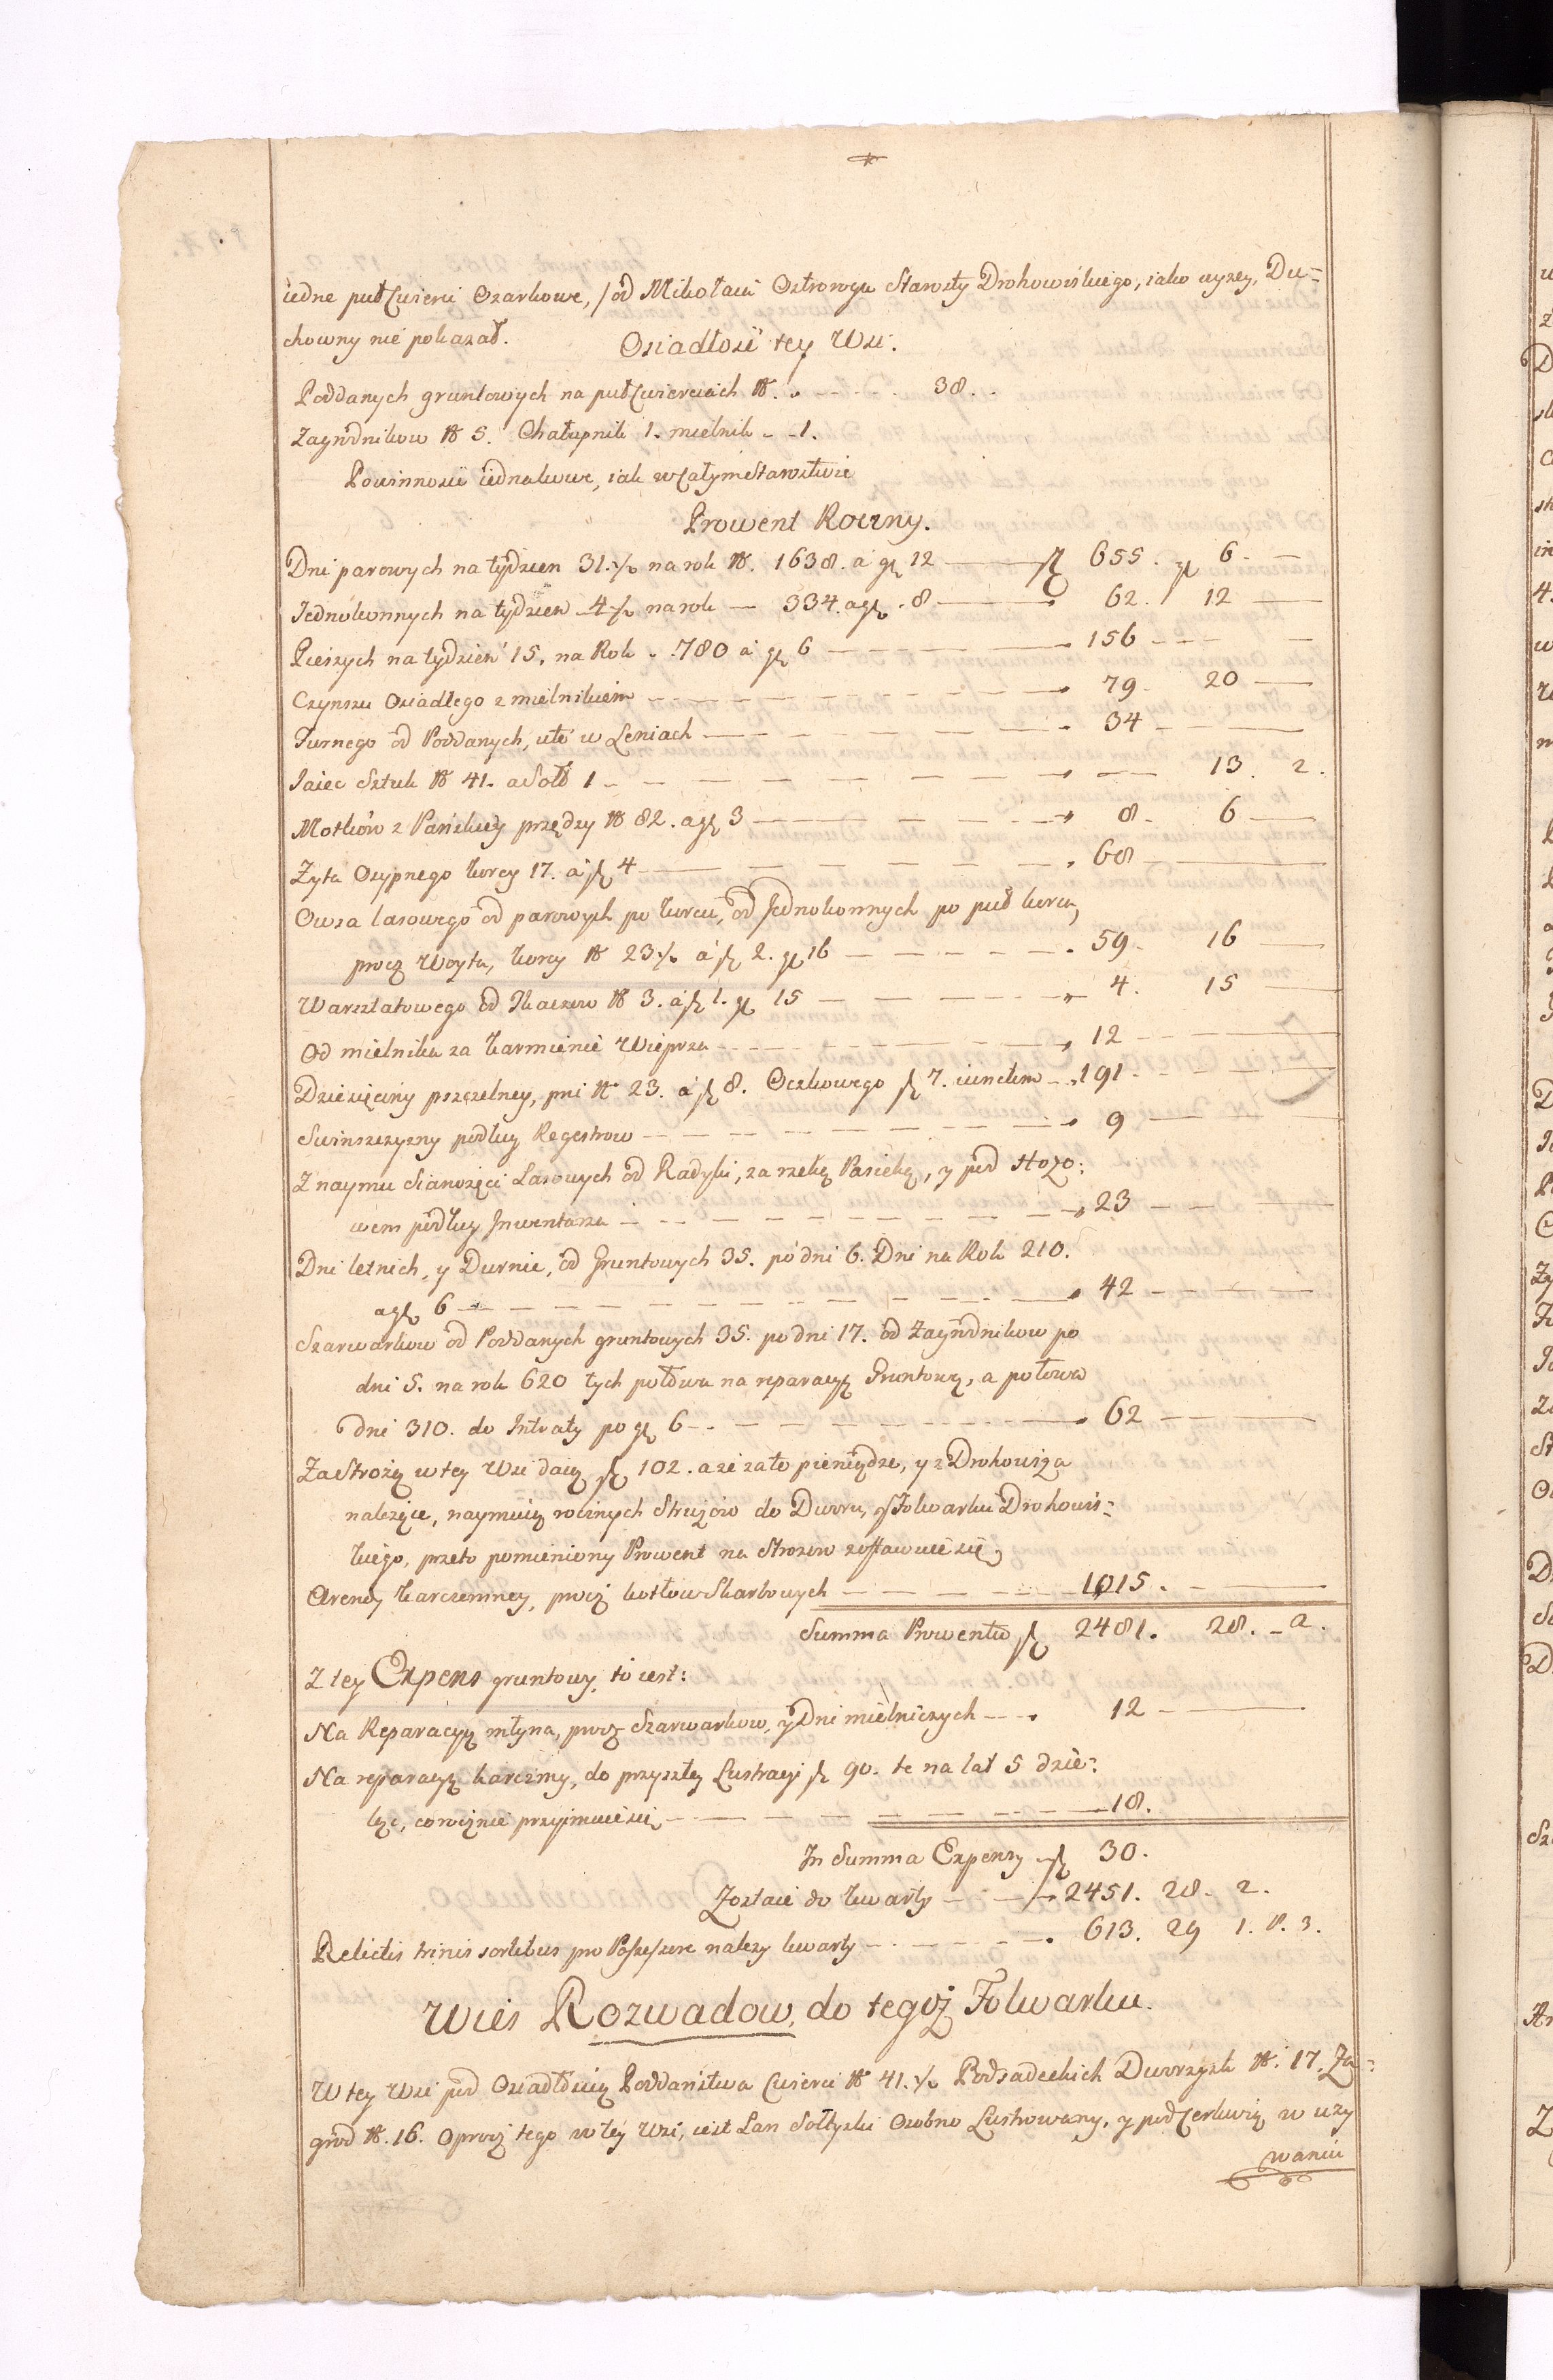 iedne pułCwierci Ozarkowe, / od Mikołaia Ostroroga Starosty Drohowiskiego, iako wyzey, Du=
chowny nie pokazał.
Osiadłość tey Wsi.
Poddanych gruntowych na pułCwierciach N. 38.
Zagrodnikow N 5. Chałupnik 1. mielnik - - 1.
Powinnosci iednakowe, iak w Całym Starostwie
Prowent Roczny.
Dni parowych na tydzien 31.½ na rok N. 1638. a gr 12 — fl 655. gr 6. —
Jednokonnych na tydzien 4½ na rok — 334. a gr. 8 — 62. 12 —
Pieszych na tydzień 15, na Rok - .780 á gr 6 — 156 - - - —
Czynszu Osiadłego z mielnikiem — 79. 20 —
Furnego od Poddanych, uto w Leniach — 34 — —
Jaiec Sztuk N 41. a Soł 1 — — 13. 2.
Motkow z Pańskiey przędzy N 82. a gr 3 — 8. 6 —
Zyta Osypnego korcy 17. á fl 4 — 68 —
Owsa lasowego od parowych po korcu, od Jednokonnych po puł korca,
procz Woyta, korcy N 23½ á fl 2. gr 16 — 59. 16 —
Warsztatowego od Tkaczow N 3. á fl 1. gr 15 — 4. 15 —
Od mielnika za karmienie Wieprza — 12 — —
Dziesięciny pszczelney, pni N 23. á fl 8. Oczkowego fl 7. iunctim - . 191 - - —
Swinszczyzny podług Regestrow — 9 — —
Z naymu Sianożęci Lasowych od Radyki, za rzeką Pasieką, y pod Hozo=
wem podług Inwentarza — 23 — —
Dni letnich, y Durnie, od Gruntowych 35. po dni 6. Dni na Rok 210.
a gr 6 — 42 — —
Szarwarkow od Poddanych gruntowych 35. po dni 17. od Zagrodnikow po
dni 5. na rok 620 tych połowa na reparacyą Gruntową, a połowa
dni 310. do Intraty po gr 6 — 62 — —
Za Strożę w tey Wsi daią fl 102. a ze za te pieniądze, y z Drohowiża
należące, naymuią rocznych Strużow do Dworu, y Folwarku Drohowis=
kiego, przeto pomieniony Prowent na Strozow zostawuie się,
Arendy karczemney, procz kotłow Skarbowych — 1015. —
Summa Prowentu fl 2481. 28. - 2.
Z tey Expens gruntowy, to iest:
Na Reparacyą młyna, procz Szarwarkow, y Dni mielniczych - - . 12 — —
Na reparacyą karczmy, do przyszłey Lustracyi fl 90. te na lat 5 dzie=
ląc, corocznie przyimuie się — 18.
In Summa Expensy fl 30.
Zostaie do kwarty — 2451. 28. 2.
Relictis trinis sortibus pro Possessore należy kwarty — 613. 29 1. P. 3.
Wies Rozwadow, do tegoż Folwarku.
W tey Wsi pod Osiadłoscią Poddaństwa Cwierci N 41.½ Podsadeckich Dworzysk N. 17. Za=
grod N. 16. oprocz tego w tey Wsi, iest Łan Sołtyski Osobno Lustrowany, y pod Cerkwią w uzy
waniu